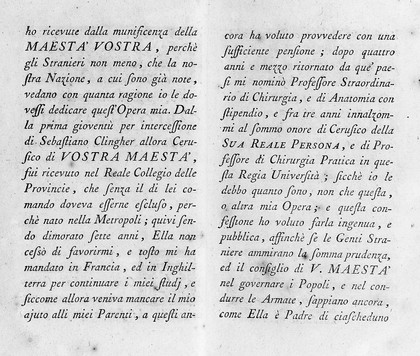 ho ricevute dalla munificenza della
MAESTA' VOSTRA, perchè
gli Stranieri non meno, che la no-
stra Nazione, a cui sono già note,
vedano con quanta ragione io le do-
vessi dedicare quest'Opera mia. Dal-
la prima gioventù per intercessione
di Sebastiano Clingher allora Ceru-
sico di VOSTRA MAESTA',
fui ricevuto nel Reale Collegio delle
Provincie, che senza il di lei co-
mando doveva esserne escluso, per-
chè nato nella Metropoli; quivi sen-
do dimorato sette anni, Ella non
cessò di favorirmi, e tosto mi ha
mandato in Francia, ed in Inghil-
terra per continuare i miei studj, e
siccome allora veniva mancare il mio
ajuto alli miei Parenti, a questi an-
cora ha voluto provvedere con una
sufficiente pensione; dopo quattro
anni e mezzo ritornato da que' pae-
si mi nominò Professore Straordina-
rio di Chirurgia, e di Anatomia con
stipendio, e fra tre anni innalzom-
mi al sommo onore di Cerusico della
SUA REALE PERSONA, e di Pro-
fessore di Chirurgia Pratica in que-
sta Regia Università; sicchè io le
debbo quanto sono, non che questa,
o altra mia Opera; e questa con-
fessione ho voluto farla ingenua, e
pubblica, affinchè se le Genti Stra-
niere ammirano la somma prudenza,
ed il consiglio di V. MAESTA'
nel governare i Popoli, e nel con-
durre le Armate, sappiano ancora,
come Ella è Padre di ciascheduno